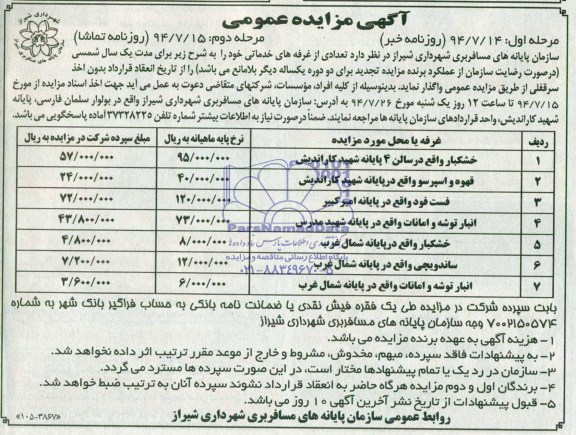 شهرداری شیراز
آگهی مزایده عمومی
مرحله اول: ۹۴/۷/۱۴ (روزنامه خبر)
مرحله دوم: ۹۴/۷/۱۵ (روزنامه تماشا)
سازمان پایانه های مسافربری شهرداری شیراز در نظر دارد تعدادی از غرفه های خدماتی خود را به شرح زیر برای مدت یک سال شمسی
(درصورت رضایت سازمان از عملکرد برنده مزایده تجدید برای دو دوره یکساله دیگر بلامانع می باشد) را از تاریخ انعقاد قرارداد بدون اخذ
سرقفلی از طریق مزایده عمومی واگذار نماید. بدینوسیله از کلیه افراد، مؤسسات، شرکتهای متقاضی دعوت به عمل می آید جهت اخذ اسناد مزایده از مورخ
۹۴/۷/۱۵ تا ساعت ۱۲ روز یک شنبه مورخ ۹۴/۷/۲۶ به آدرس: سازمان پایانه های مسافربری شهرداری شیراز واقع در بولوار سلمان فارسی، پایانه
شهید کاراندیش، واحد قراردادهای سازمان پایانه ها مراجعه نمایند. ضمناً درصورت نیاز به اطلاعات بیشتر شماره تلفن ۳۷۳۲۸۳۲۵ آماده پاسخگویی می باشد.
ردیف غرفه یا محل مورد مزایده نرخ پایه ماهیانه به ریال مبلغ سپرده شرکت در مزایده به ریال
۱ خشکبار واقع درسالن ۴ پایانه شهید کاراندیش ۹۵/۰۰۰/۰۰۰ ۵۷/۰۰۰/۰۰۰
۲ قهوه و اسپرسو واقع درپایانه شهید کاراندیش ۴۰/۰۰۰/۰۰۰ ۲۴/۰۰۰/۰۰۰
۳ فست فود واقع در پایانه امیرکبیر ۱۲۰/۰۰۰/۰۰۰ ۷۲/۰۰۰/۰۰۰
۴ انبار توشه و امانات واقع در پایانه شهید مدرس ۷۳/۰۰۰/۰۰۰ ۴۳/۸۰۰/۰۰۰
۵ خشکبار واقع درپایانه شمال غرب ۸/۰۰۰/۰۰۰ ۴/۸۰۰/۰۰۰
۶ ساندویچی واقع در پایانه شمال غرب ۱۲/۰۰۰/۰۰۰ ۷/۲۰۰/۰۰۰
۷ انبار توشه و امانات واقع در پایانه شمال غرب ۶/۰۰۰/۰۰۰ ۳/۶۰۰/۰۰۰
ParsNamadData
پایگاه اطلاع رسانی مناقصه و مزایده
۰۲۱-۸۸۳۴۹۶۷۰-۵
بابت سپرده شرکت در مزایده طی یک فقره فیش نقدی یا ضمانت نامه بانکی به حساب فراگیر بانک شهر به شماره
۷۰۰۲۱۵۰۵۷۴ وجه سازمان پایانه های مسافربری شهرداری شیراز
۱- هزینه آگهی به عهده برنده مزایده می باشد.
۲- به پیشنهادات فاقد سپرده، مبهم، مخدوش، مشروط و خارج از موعد مقرر ترتیب اثر داده نخواهد شد.
۳- سازمان در رد یک یا تمام پیشنهادها مختار است، در این صورت سپرده ها مسترد می گردد.
۴- برندگان اول و دوم مزایده هرگاه حاضر به انعقاد قرارداد نشوند سپرده آنان به ترتیب ضبط خواهد شد.
۵- قبول پیشنهادات از تاریخ نشر آخرین آگهی ۱۰ روز می باشد.
روابط عمومی سازمان پایانه های مسافربری شهرداری شیراز
«۱۰۵-۳۸۶۷»